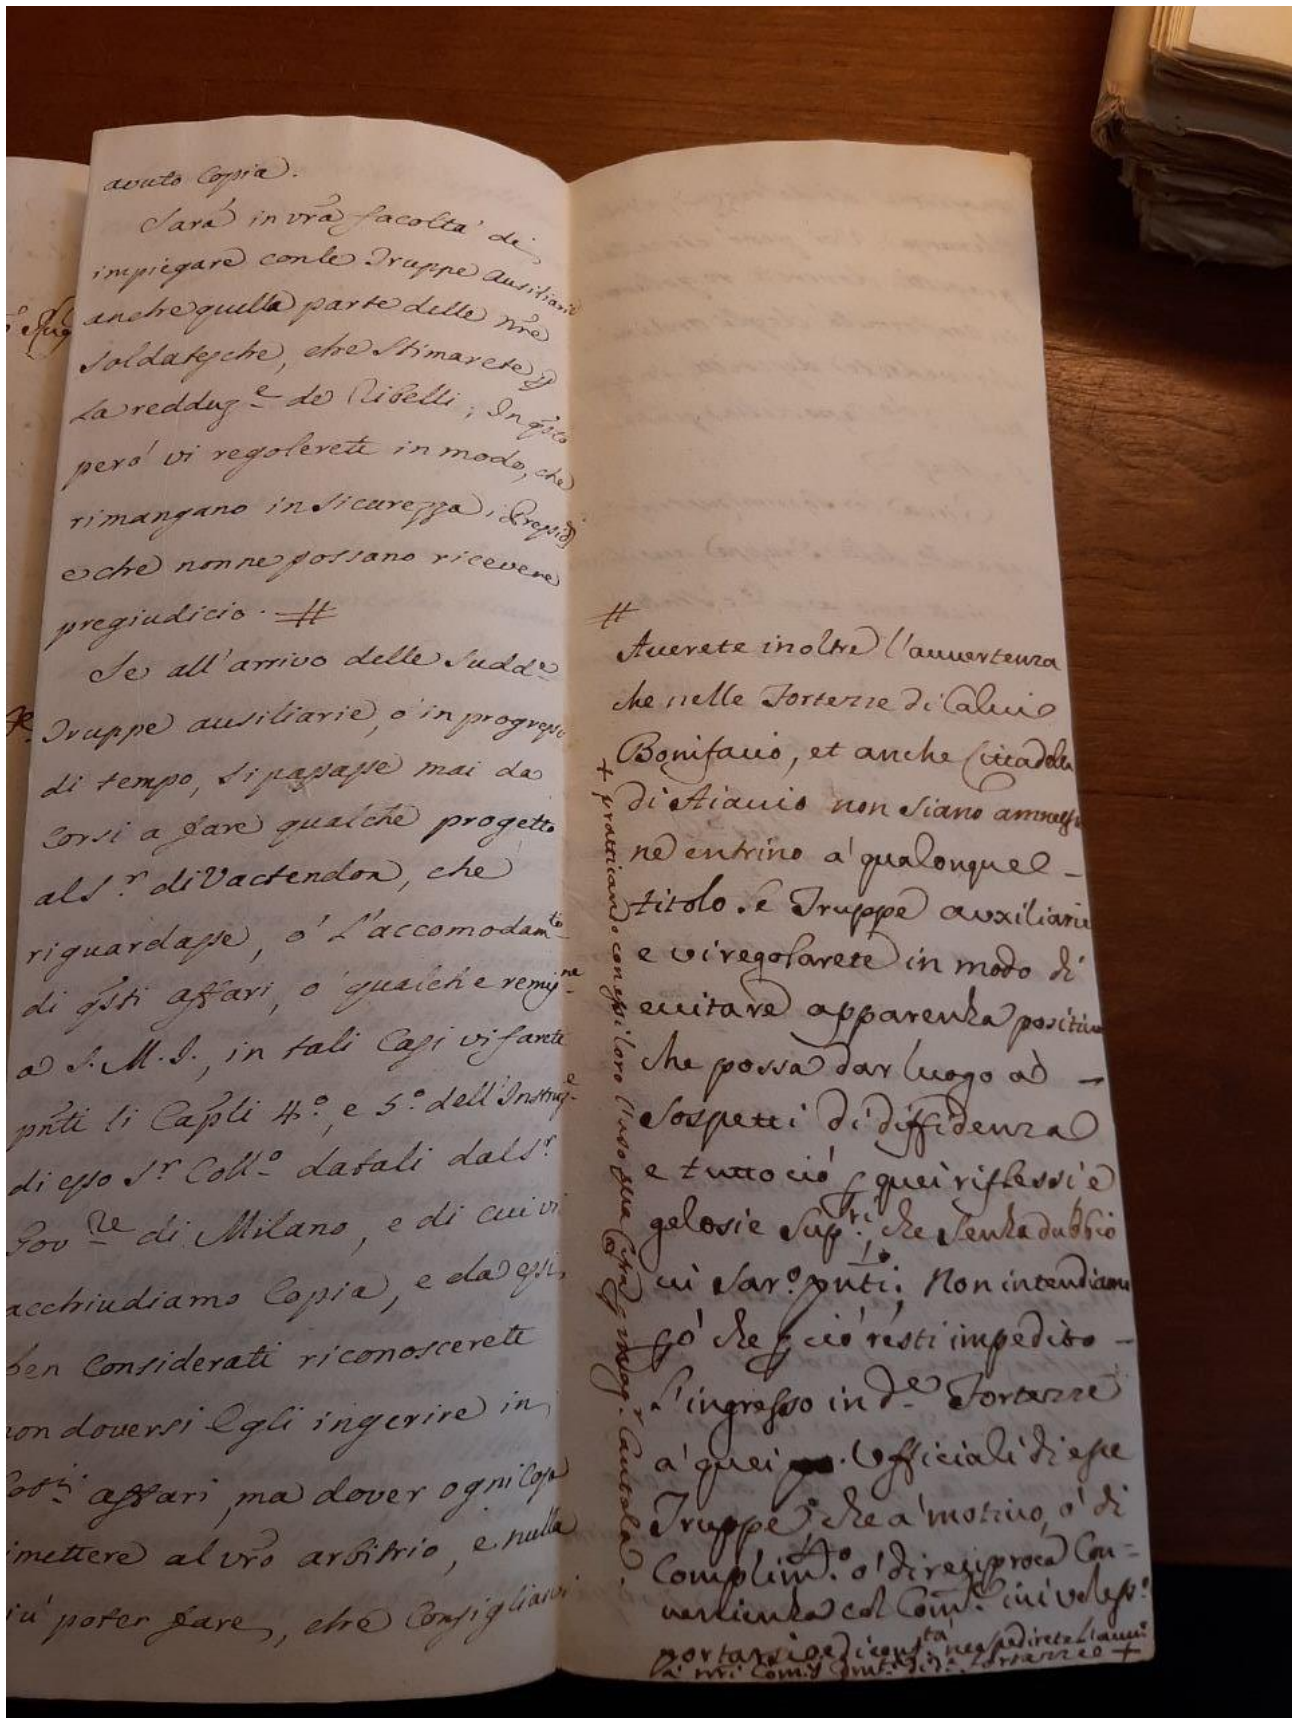 avuto Copia.
Sarà in vrã facoltà di
impiegare con le Truppe Ausiliarie
anche quella parte delle nr̃e
soldatesche, che stimarete p
la redduz.e de Ribelli; In q̃sto
però vi regolerete in modo, che
rimangano in sicurezza i Presidj
e che non ne possano ricevere
pregiudicio. #
Se all'arrivo delle sudd.e
Truppe ausiliarie, ò in progresso
di tempo, si passasse mai da
Corsi a fare qualche progetto
al S.r di Vactendon, che
riguardasse, ò l'accomodam.to
di q̃sti affari, ò qualche remiss.ne
a S. M. I., in tali Casi vi farete
pñti li Cap̃li 4.º, e 5.º dell'Instruz.e
di esso S.r Coll.º datali dal S.r
Gov.re di Milano, e di cui vi
acchiudiamo Copia, e da essi
ben Considerati riconoscerete
non doversi Egli ingerire in
affari, ma dover ogni Cosa
rimettere al vrõ arbitrio, e nulla
più poter fare, che Consigliarvi
#
Averete inoltre l'avvertenza
che nelle Fortezze di Calvi e
Bonifacio, et anche Cittadella
di Aiaccio non siano ammesse
nè entrino à qualonque
titolo le Truppe auxiliarie
e vi regolarete in modo di
evitare apparenza positiva
che possa dar luogo à
sospetti di diffidenza
e tutto ciò p quei riflessi e
gelosie sup.ri, che senza dubbio
vi sar.º pñti; Non intendiamo
pò che p ciò resti impedito
l'ingresso in d.e Fortezze
à quei Officiali di esse
Truppe, che à motivo, ò di
Complim.to ò di reciproca Con=
venienza col Com.te ivi voless.º
portarsi
à nrĩ Com.ti Fortezze +
+ pratticando con essi loro l'uso
Cautela.